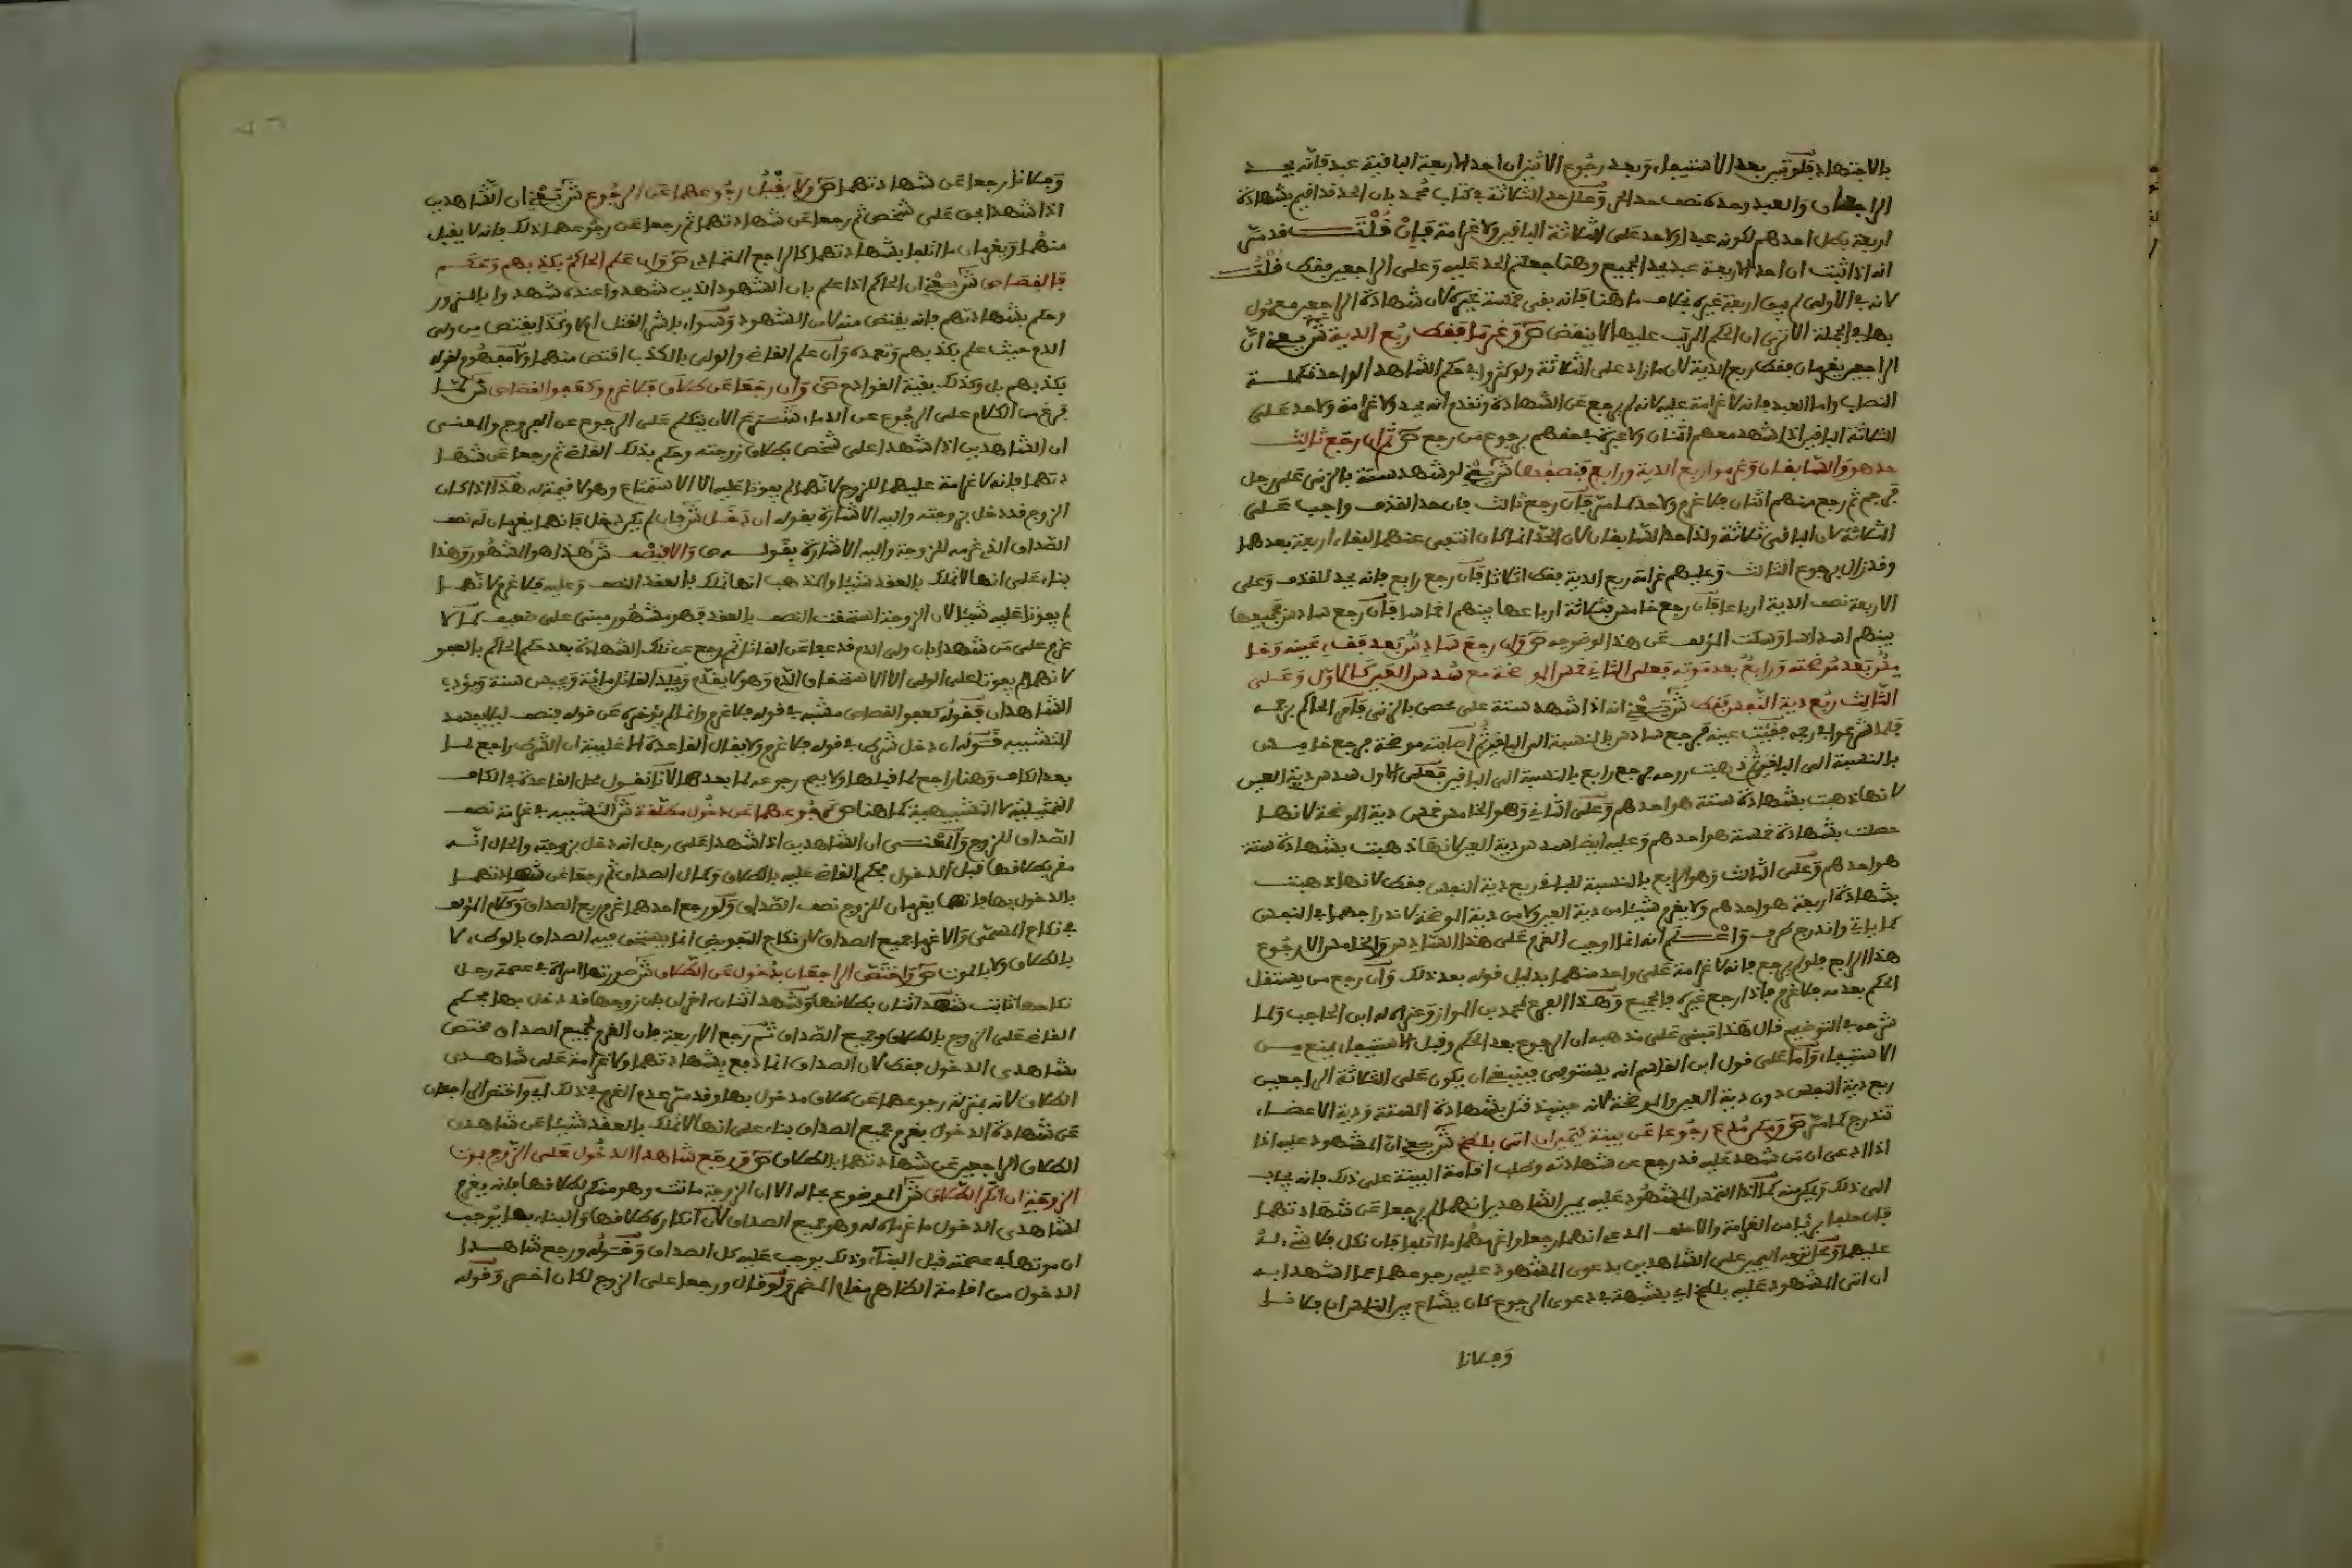 بالاجتهاد فلو تبين بعد الاستيفاء وبعد رجوع الاثنين ان احد الاربعة الباقية عبد فانه يحد
الراجعان والعبد وحده نصف حد الحر ولا حد الثلاثة في كتاب محمد بان الحد قد اقيم بشهادة
اربعة بطل احدهم لكونه عبدا ولا حد على الثلاثة الباقين ولا غرامة فان قلت قد مر
انه اذا ثبت ان احد الاربعة عبد يحد الجميع وهنا جعلتم الحد عليه وعلى الراجعين فقط قلت
لانه في الاولى لم يبق اربعة غيره بخلاف ما هنا فانه بقي خمسة غيره لان شهادة الراجعين معمول
بها في الجملة الا ترى ان الحكم المرتب عليها لا ينقض ص وغرما فقط ربع الدية ش يعني ان
الراجعين يغرمان فقط ربع الدية لان ما زاد على الثلاثة ولو كثروا في حكم الشاهد الواحد تكملة
النصاب واما العبد فانه لا غرامة عليه لانه لم يرجع عن الشهادة وتقدم انه يحد ولا غرامة ولا حد على
الثلاثة الباقين اذا شهد معهم اثنان ولا عبرة بـ برجوع من رجع ص ثم ان رجع ثالث
حد هو والسابقان وغرموا ربع الدية ورابع فنصفها ش يعني لو شهد ستة بالزنى على رجل
فرجم ثم رجع منهم اثنان فلا غرم ولا حد كما مر فان رجع ثالث فان حد القذف واجب على
الثلاثة لان الباقي ثلاثة ولذا حد السابقان لان الحد انما كان انتفى عنهما لبقاء اربعة بعدهما
وقد زال برجوع الثالث وعليهم غرامة ربع الدية فقط اثلاثا فان رجع رابع فانه يحد للقذف وعلى
الاربعة نصف الدية ارباعا فان رجع خامس فثلاثة ارباعها بينهم اخماسا فان رجع سادس فجميعها
بينهم اسداسا وسكت المؤلف عن هذا لوضوحه ص وان رجع سادس بعد فقء عينه وخا
مس بعد موضحته ورابع بعد موته فعلى الثاني خمس الموضحة مع سدس العين كالاول وعلى
الثالث ربع دية النفس فقط ش يعني انه اذا شهد ستة على محصن بالزنى فامر الحاكم برجمه
فلما شرعوا في رجمه فقئت عينه فرجع سادس بالنسبة الى الباقين ثم اصابته موضحة فرجع خامس
بالنسبة الى الباقين ثم ذهبت روحه فرجع رابع بالنسبة الى الباقين فعلى الاول سدس دية العين
لانها ذهبت بشهادة ستة هو احدهم وعلى الثاني وهو الخامس خمس دية الموضحة لانها
حصلت بشهادة خمسة هو احدهم وعليه ايضا سدس دية العين لانها ذهبت بشهادة ستة
هو احدهم وعلى الثالث وهو الرابع بالنسبة للباقي ربع دية النفس فقط لانها ذهبت
بشهادة اربعة هو احدهم ولا يغرم شيئا من دية العين ولا من دية الموضحة لاندراجهما في النفس
كما ياتي واندرج طرف واعلم انه انما اوجب الغرم على هذا السادس والخامس الا رجوع
هذا الرابع فلو لم يرجع فانه لا غرامة على واحد منهما بدليل قوله بعد ذلك وان رجع من يستقل
الحكم بعدمه فلا غرم فاذا رجع غيره فالجميع وهذا الفرع لمحمد بن المواز وعزاه له ابن الحاجب ولما
شرحه في التوضيح قال هذا مبني على مذهبه ان الرجوع بعد الحكم وقبل الاستيفاء يمنع من
الاستيفاء واما على قول ابن القاسم انه يستوفى فينبغي ان يكون على الثلاثة الراجعين
ربع دية النفس دون دية العين والموضحة لانه حينئذ قتل بشهادة الستة ودية الاعضاء
تندرج كما مر ص ومكن مدع رجوعا عن بينة كيمين ان اتى بلطخ ش يعني ان المشهود عليه اذا
اذا ادعى ان من شهد عليه قد رجع عن شهادته وطلب اقامة البينة على ذلك فانه يجاب
الى ذلك ويمكن منه كما اذا التمس المشهود عليه يمين الشاهدين انهما لم يرجعا عن شهادتهما
فان حلفا برئا من الغرامة والا حلف المدعي انهما رجعا واغرمهما ما اتلفا فان نكل فلا شيء له
عليهما ومحل توجه اليمين على الشاهدين بدعوى المشهود عليه رجوعهما عما اشهدا به
ان اتى المشهود عليه بلطخ اي بشبهة في دعوى الرجوع كان يشاع بين الناس ان فلانا
وفلانا
وفلانا رجعا عن شهادتهما ص ولا يقبل رجوعهما عن الرجوع ش يعني ان الشاهدين
اذا شهدا بحق على شخص ثم رجعا عن شهادتهما ثم رجعا عن رجوعهما ذلك فانه لا يقبل
منهما ويغرمان ما اتلفا بشهادتهما كالراجع المتمادي ص وان علم الحاكم بكذبهم وحكم
فالقصاص ش يعني ان الحاكم اذا علم بان الشهود الذين شهدوا عنده شهدوا بالزور
وحكم بشهادتهم فانه يقتص منه لا من الشهود وسواء باشر القتل ام لا وكذا يقتص من ولي
الدم حيث علم بكذبهم وتعمده وان علم القاضي والولي بالكذب اقتص منهما ولا مفهوم لقوله
بكذبهم بل وكذلك بقية القوادح ص وان رجعا عن طلاق فلا غرم كعفو القصاص ش لما
فرغ من الكلام على الرجوع عن الدماء شرع الان يتكلم على الرجوع عن الفروج والمعنى
ان الشاهدين اذا شهدا على شخص بطلاق زوجته وحكم بذلك القاضي ثم رجعا عن شها
دتهما فانه لا غرامة عليهما للزوج لانهما لم يفوتا عليه الا الاستمتاع وهو لا قيمة له هذا اذا كان
الزوج قد دخل بزوجته واليه الاشارة بقوله ان دخل ش فان لم يكن دخل فانهما يغرمان له نصف
الصداق الذي غرمه للزوجة واليه الاشارة بقوله ص والا فنصفه ش هذا هو المشهور وهذا
بناء على انها لا تملك بالعقد شيئا والمذهب انها تملك بالعقد النصف وعليه فلا غرم لانهما
لم يفوتا عليه شيئا لان الزوجة استحقت النصف بالعقد فهو مشهور مبني على ضعيف كما لا
غرم على من شهدا بان ولي الدم قد عفا عن القاتل ثم رجع عن تلك الشهادة بعد حكم الحاكم بالعفو
لانهما لم يفوتا على الولي الا الاستحقاق الدم وهو لا يقوم ويجلد القاتل مائة ويحبس سنة ويؤدب
الشاهدان فقوله كعفو القصاص مشبه في قوله فلا غرم وانما لم يؤخره عن قوله فنصف ليلا يفسد
التشبيه فقوله ان دخل شرط في قوله فلا غرم ولا يقال القاعدة الاغلبية ان الشرط راجع لما
بعد الكاف وهنا راجع لما قبلها ولا يصح رجوعه لما بعدها لانا نقول محل القاعدة في الكاف
التمثيلية لا التشبيهية كما هنا ص كرجوعهما عن دخول مطلقة ش التشبيه في غرامة نصف
الصداق للزوج والمعنى ان الشاهدين اذا شهدا على رجل انه دخل بزوجته والحال انه
مقر بطلاقها قبل الدخول فحكم القاضي عليه بالطلاق وكمال الصداق ثم رجعا عن شهادتهما
بالدخول بها فانهما يغرمان للزوج نصف الصداق ولو رجع احدهما غرم ربع الصداق وكلام المؤلف
في نكاح المسمى والا غرما جميع الصداق لان نكاح التفويض انما يستحق فيه الصداق بالوطء لا
بالطلاق ولا بالموت ص واختص الراجعان بدخول عن الطلاق ش صورتها امراة في عصمة رجل
نكاحها ثابت شهد اثنان بطلاقها وشهد اثنان اخران بان زوجها قد دخل بها فحكم
القاضي على الزوج بالطلاق وجميع الصداق ثم رجع الاربعة فان الغرم لجميع الصداق مختص
بشاهدي الدخول فقط لان الصداق انما دفع بشهادتهما ولا غرامة على شاهدي
الطلاق لانه بمنزلة رجوعهما عن طلاق مدخول بها وقد مر عدم الغرم في ذلك اي واختص الراجعان
عن شهادة الدخول بغرم جميع الصداق بناء على انها لا تملك بالعقد شيئا عن شاهدي
الطلاق الراجعين عن شهادتهما بالطلاق ص ورجع شاهدا الدخول على الزوج بموت
الزوجة ان انكر الطلاق ش الموضوع بحاله الا ان الزوجة ماتت وهو منكر لطلاقها فانه يغرم
لشاهدي الدخول ما غرماه له وهو جميع الصداق لان انكاره طلاقها والبناء بها يوجب
ان موتها في عصمته قبل البناء وذلك يوجب عليه كل الصداق وقوله ورجع شاهدا
الدخول من اقامة الظاهر مقام المضمر ولو قال ورجعا على الزوج لكان اخصر وقوله